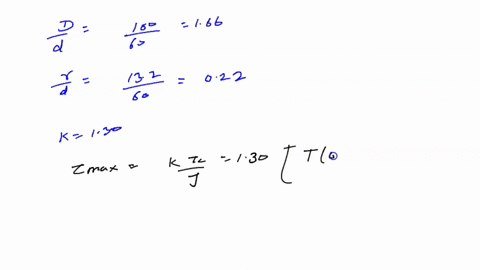 D/d = 100/60 = 1.66
r/d = 13.2/60 = 0.22
K = 1.30
τmax = K Tc/J = 1.30 [ T(0